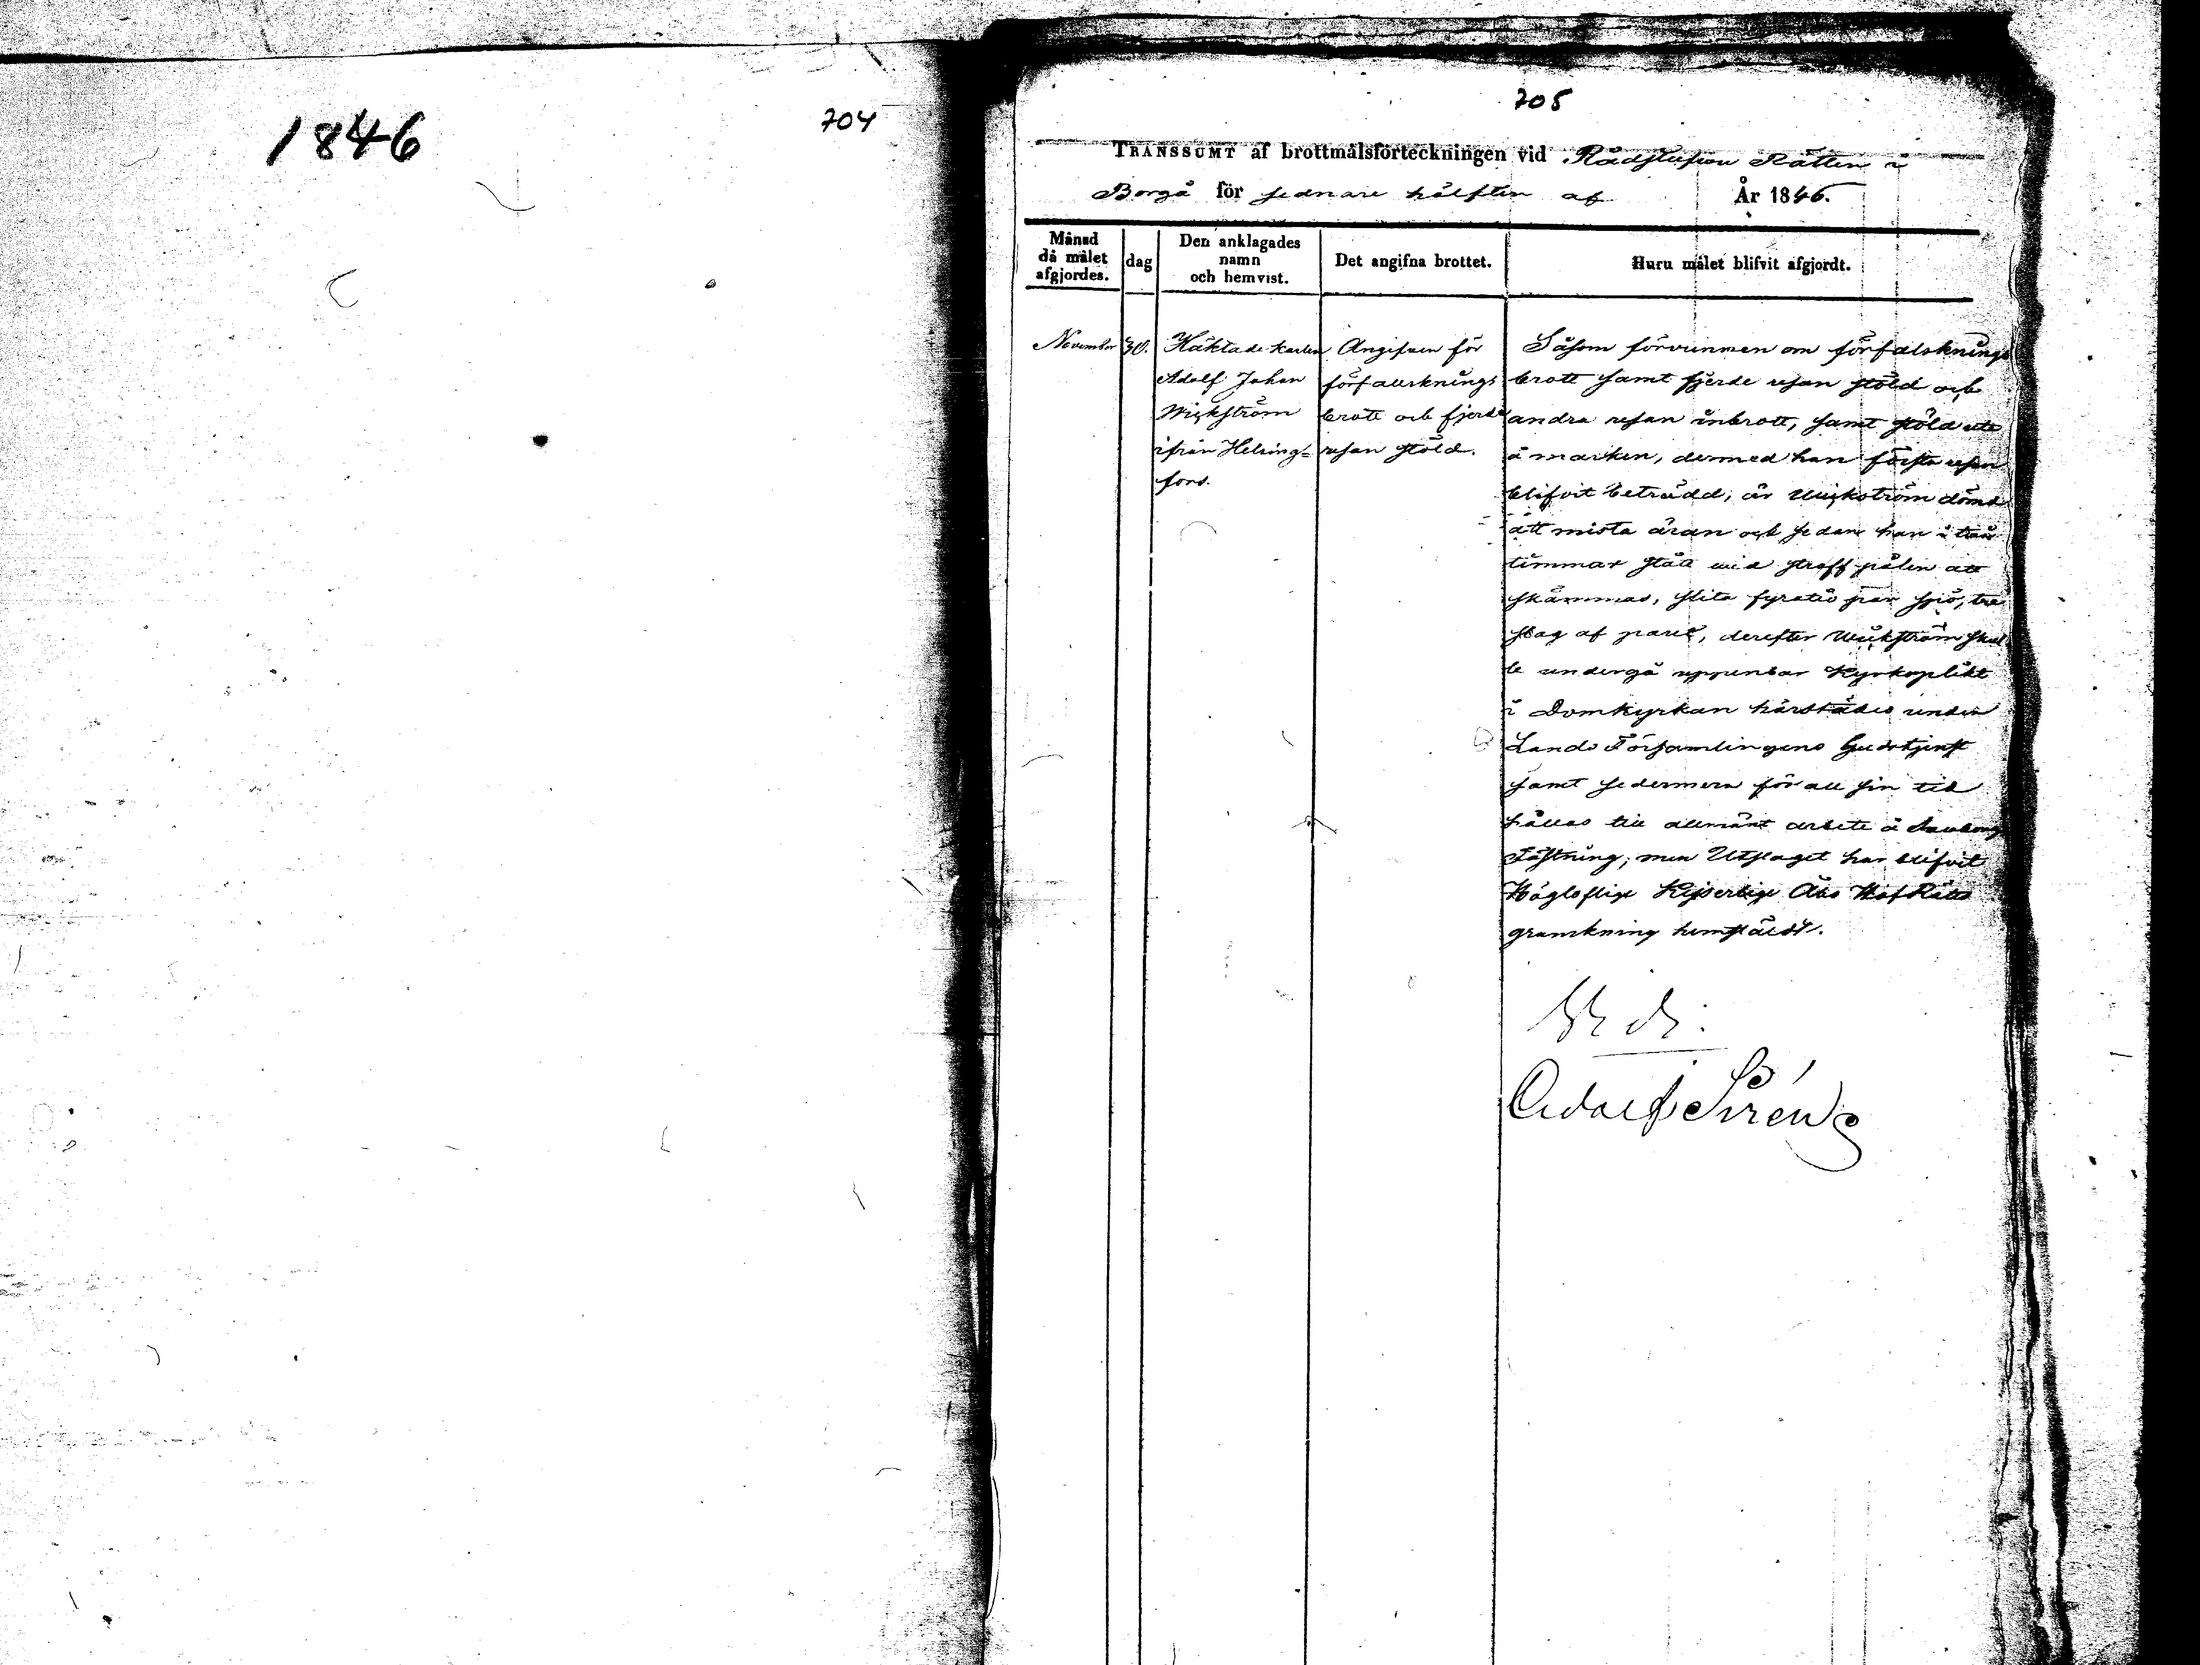 1846
704
705
TRANSSUMT af brottmålsförteckningen vid Rådstufvu Rätten i
Borgå för sednare hälften af År 1846.
Månad då målet afgjordes.
dag
Den anklagades namn och hemvist.
Det angifna brottet.
Huru målet blifvit afgjordt.
November
30.
Häktade karlen
Adolf Johan
Wickström
ifrån Helsing=
fors.
Angifven för
förfallsknings
brott och fjerde
resan stöld.
Såsom förvunnen om förfalsknings
brott samt fjerde resan stöld och
andra resan inbrott, samt stöld ute
å marken, dermed han första resan
blifvit beträdd, är Wickström dömd
att mista äran och sedan han i två
timmar stått vid straffpålen att
skämmas, slita fyratio par spö, tre
slag af paret, derefter Wickström skul
le undergå uppenbar Kyrkoplikt
i Domkyrkan härstädes under
Lands Församlingens Gudstjenst
samt sedermera för all sin tid
hållas till allmänt arbete å Sveaborgs
Fästning; men Utslaget har blifvit
Högloflige Kejserlige Åbo HofRätts
granskning hemstäldt.
Adolf Sirén